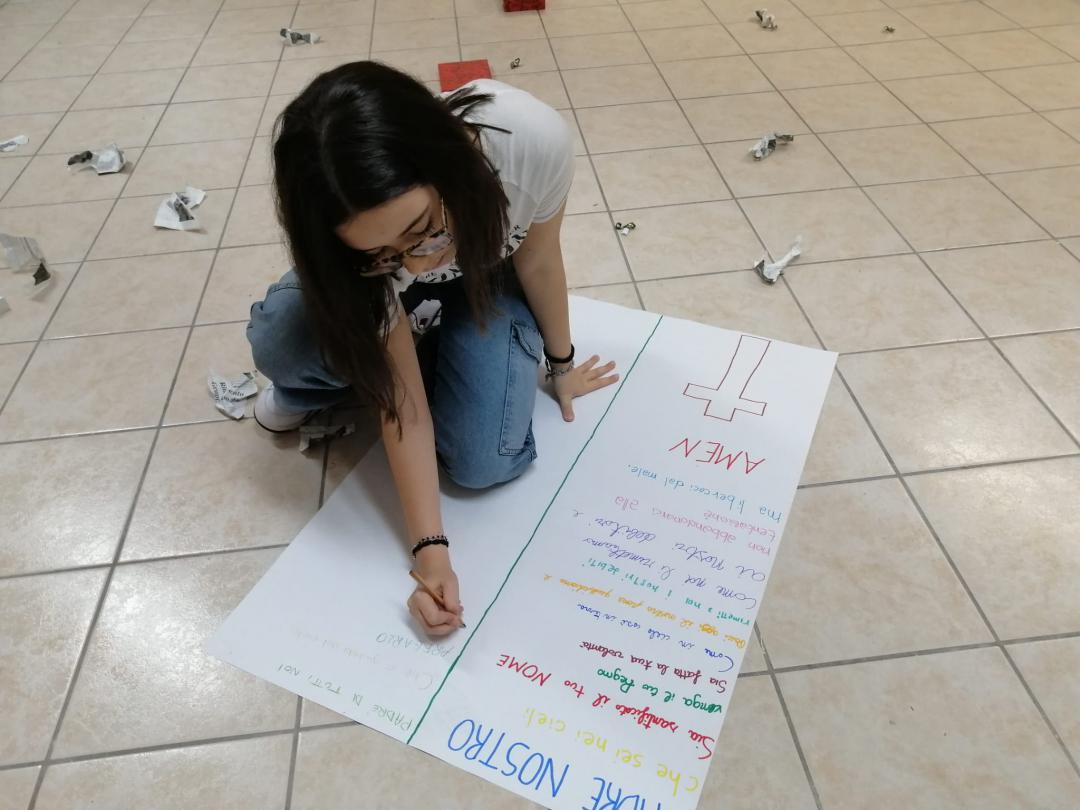 PADRE DI TUTTI, NOI
ADRE NOSTRO
che sei nei cieli
Sia santificato il tuo NOME
venga il tuo Regno
Sia fatta la tua volontà
Come in cielo così in terra
Dacci oggi il nostro pane quotidiano e
rimetti a noi i nostri debiti
Come noi li rimettiamo
ai nostri debitori e
non abbandonarci alla
tentazione
ma liberaci dal male.
AMEN